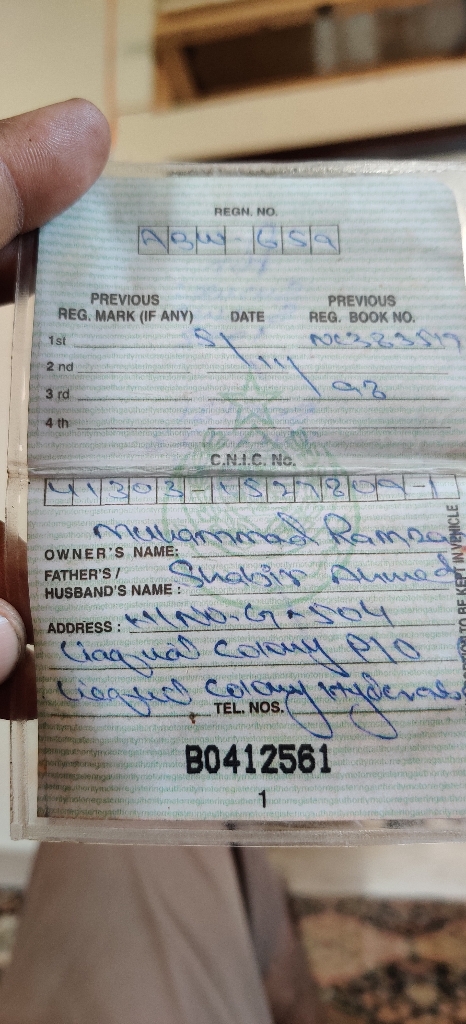 REGN. NO.
ABW-659
PREVIOUS REG. MARK (IF ANY) DATE PREVIOUS REG. BOOK NO.
1st 5/11/98
2nd
3rd
4th
C.N.I.C. No.
Muhammad
OWNER'S NAME:
FATHER'S / HUSBAND'S NAME : Shabir Ahmed
ADDRESS : H/NO. G-504
Liaquat Colony P/O
Liaquat Colony Hyderabad
TEL. NOS.
B0412561
1
TO BE KEPT IN VEHICLE